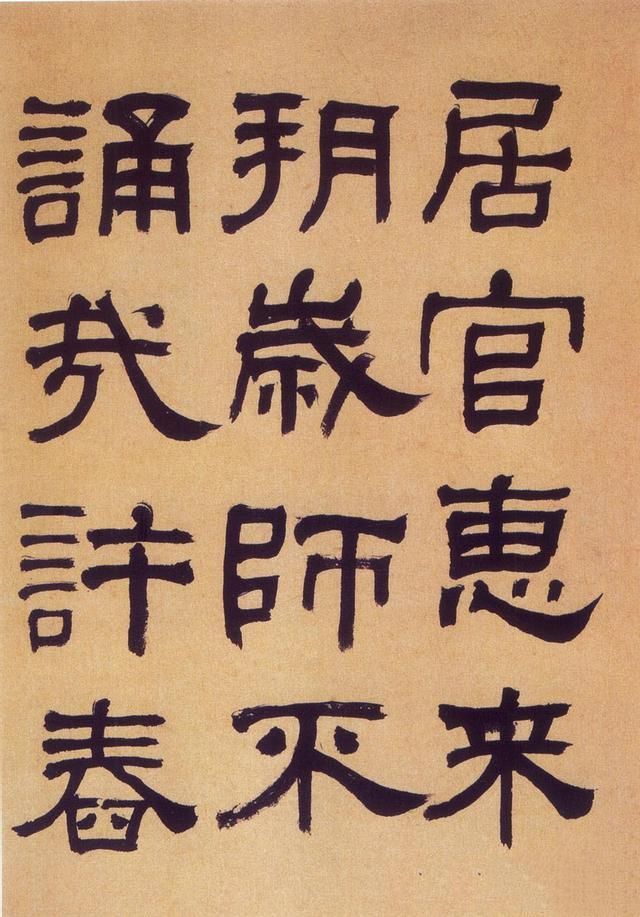 居官惠来
歲師不
誦我許舂